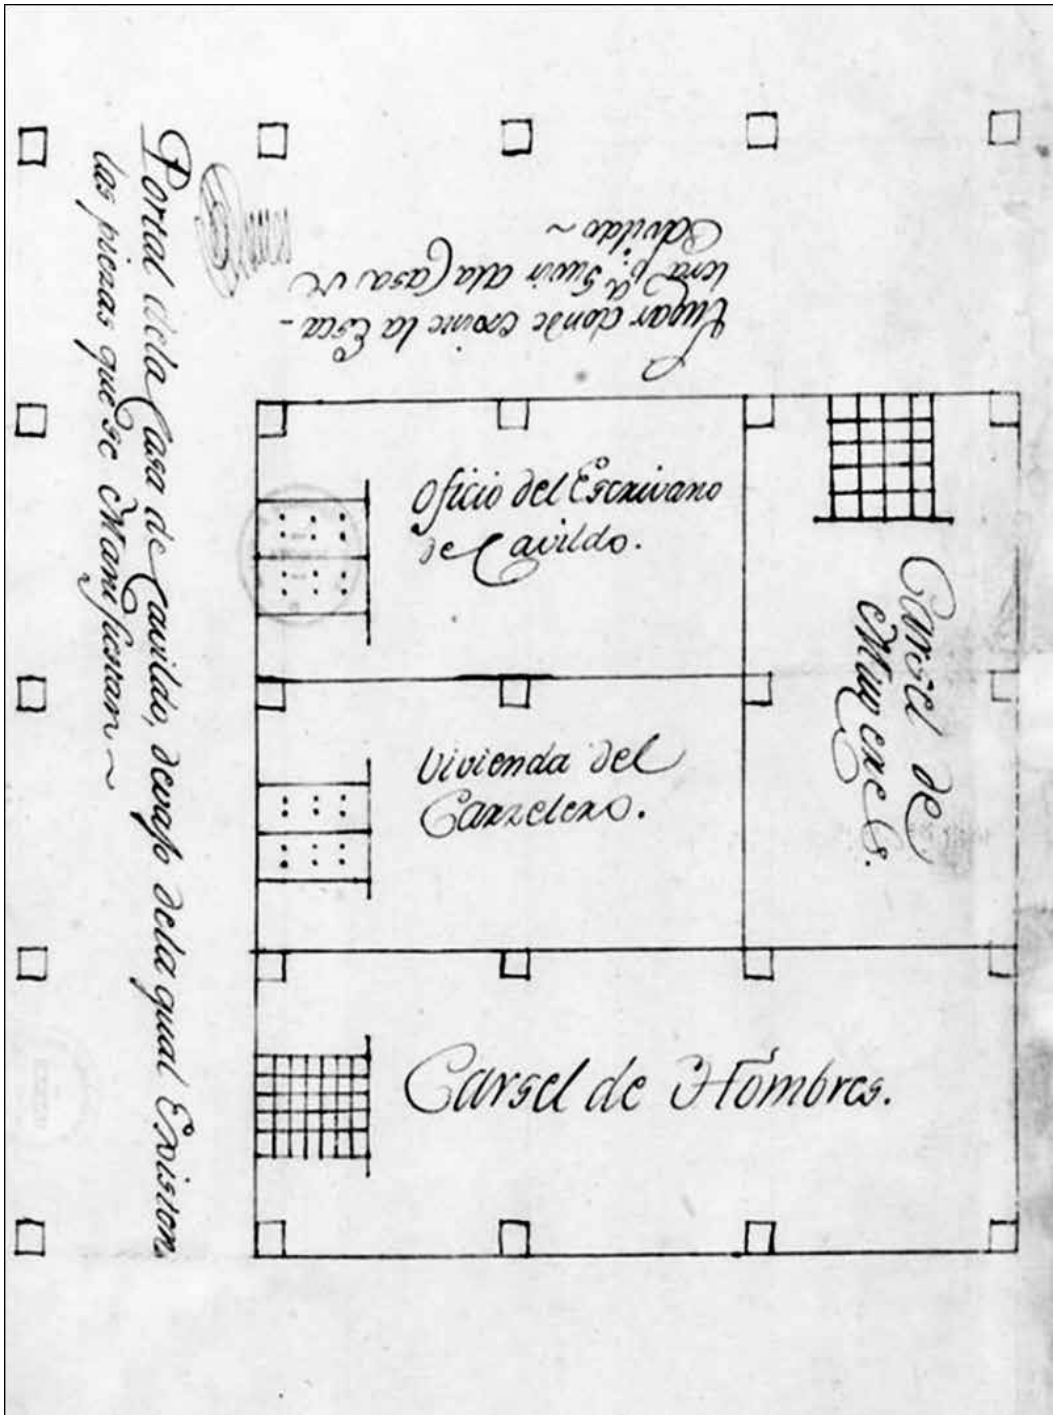 Portal dela Casa de Cavildo, devajo dela qual Existen
las piezas que se Manifiestan ~
Lugar donde existe la Esca-
lera pª. Suvir ala Casa de
Cavildo ~
Oficio del Escrivano
de Cavildo.
Carsel de
Mugeres.
Vivienda del
Carzelero.
Carsel de Hombres.